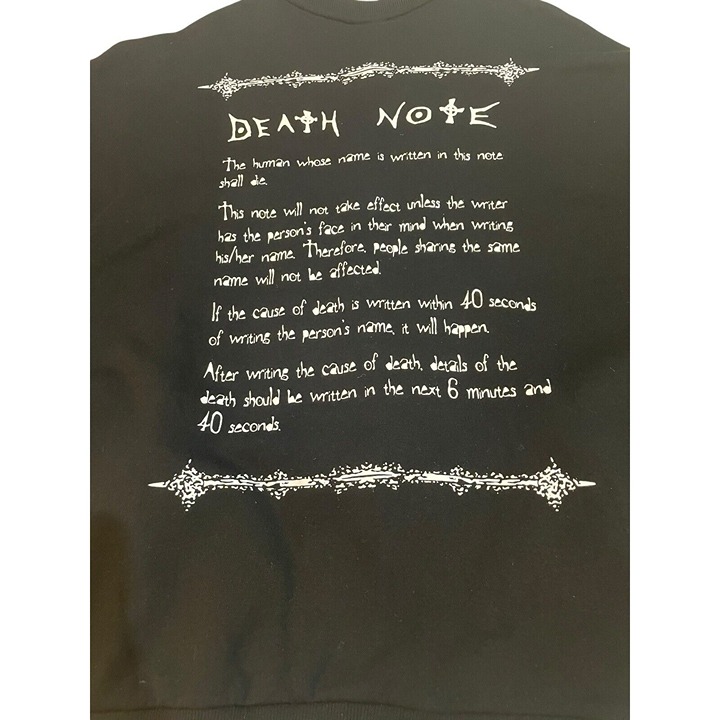 DEATH NOTE
The human whose name is written in this note
shall die.
This note will not take effect unless the writer
has the person's face in their mind when writing
his/her name. Therefore, people sharing the same
name will not be affected.
If the cause of death is written within 40 seconds
of writing the person's name, it will happen.
After writing the cause of death, details of the
death should be written in the next 6 minutes and
40 seconds.